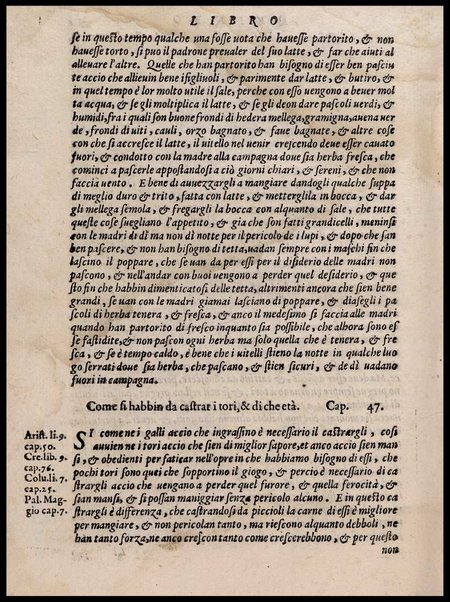 LIBRO
se in questo tempo qualche una fosse uota che hauesse partorito, & non
hauesse torto, si puo il padrone preualer del suo latte, & far che aiuti al
alleuare l'altre. Quelle che han partorito han bisogno di esser ben pasciu
te accio che allieuin bene i figliuoli, & parimente dar latte, & butiro, &
in quel tempo è lor molto utile il sale, perche con esso uengono a beuer mol
ta acqua, & se gli moltiplica il latte, & se gli deon dare pascoli uerdi, &
humidi, fra i quali son buone frondi di hedera mellega, gramigna, auena uer
de, frondi di uiti, cauli, orzo bagnato, & faue bagnate, & altre cose
con che si accresce il latte, il uitello nel uenir crescendo deue esser cauato
fuori, & condotto con la madre alla campagna doue sia herba fresca, che
cominci a pascerle appostandosi a ciò giorni chiari, & sereni, & che non
faccia uento. E bene di auuezzargli a mangiare dandogli qualche suppa
di meglio duro & trito, fatta con latte, & metterglila in bocca, & dar
gli mellega semola, & fregargli la bocca con alquanto di sale, che tutte
queste cose suegliano l'appetito, & gia che son fatti grandicelli, meninsi
con le madri di dì ma non dì notte per il pericolo de i lupi, & dopo che san
ben pascere, & non han bisogno di tetta, uadan sempre con i maschi fin che
lascino il poppare, che se uan da per essi per il disiderio delle madri non
pascono, & nell'andar con buoi uengono a perder quel desiderio, & que
sto fin che habbin dimenticatosi delle tetta, altrimenti ancora che sien bene
grandi, se uan con le madri giamai lasciano di poppare, & diasegli i pa
scoli di herba tenera, & fresca, & anco il medesimo si faccia alle madri
quando han partorito di fresco inquanto sia possibile, che alhora sono es
se fastidite, & non pascon ogni herba ma solo quella che è tenera, & fre
sca, & se è tempo caldo, è bene che i uitelli stieno la notte in qualche luo
go serrati doue sia herba, che pascano, & stien sicuri, & de dì uadano
fuori in campagna.
Come si habbin da castrar i tori, & di che età. Cap. 47.
Arist. li. 9.
cap. 50.
Cre. lib. 9.
cap. 76.
Colu. li. 7.
cap. 25.
Pal. Mag-
gio cap. 7.
SI come ne i galli accio che ingrassino è necessario il castrargli, cosi
auuiene ne i tori accio che sien di miglior sapore, et anco accio sien man
si, & obedienti per faticar nell'opre in che habbiamo bisogno di essi, che
pochi tori sono quei che sopportino il giogo, & perciò è necessario di ca
strargli accio che uengano a perder quel furore, & quella ferocità, &
sian mansi, & si possan maniggiar senza pericolo alcuno. E in questo ca
strargli è differenza, che castrandosi da piccioli la carne di essi è migliore
per mangiare, & non pericolan tanto, ma riescono alquanto debboli, ne
han tanto forza, ne anco crescon tanto come crescerebbono, & per questo
non